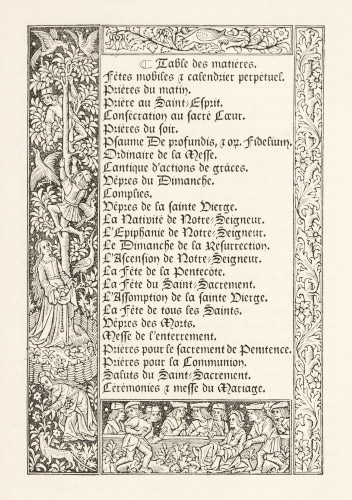 ☾ Table des matières.
Fêtes mobiles & calendrier perpétuel.
Prières du matin.
Prière au Saint-Esprit.
Consécration au sacré Cœur.
Prières du soir.
Psaume De profundis, & or. Fidelium.
Ordinaire de la Messe.
Cantique d'actions de grâces.
Vêpres du Dimanche.
Complies.
Vêpres de la sainte Vierge.
La Nativité de Notre-Seigneur.
L'Epiphanie de Notre-Seigneur.
Le Dimanche de la Résurrection.
L'Ascension de Notre-Seigneur.
La Fête de la Pentecôte.
La Fête du Saint-Sacrement.
L'Assomption de la sainte Vierge.
La Fête de tous les Saints.
Vêpres des Morts.
Messe de l'enterrement.
Prières pour le sacrement de Penitence.
Prières pour la Communion.
Saluts du Saint-Sacrement.
Cérémonies & messe du Mariage.